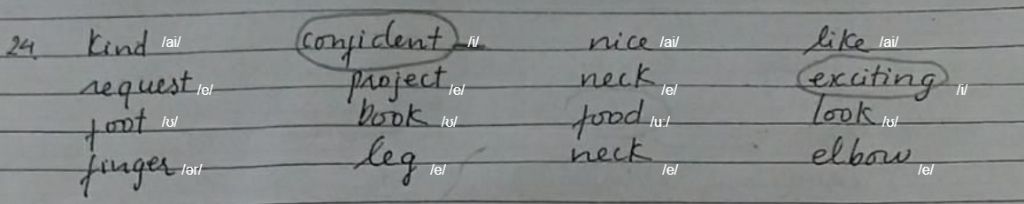 24. kind /ai/ confident /i/ nice /ai/ like /ai/
request /e/ project /e/ neck /e/ exciting /i/
foot /ʊ/ book /ʊ/ food /u:/ look /ʊ/
finger /ər/ leg /e/ neck /e/ elbow /e/